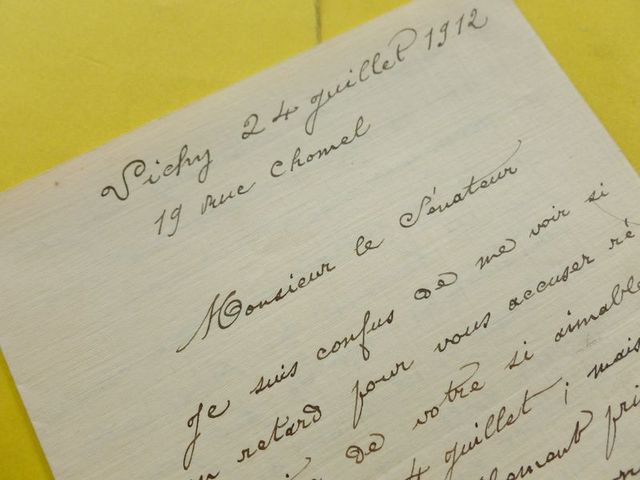 Vichy 24 juillet 1912
19 rue Chomel
Monsieur le Sénateur
Je suis confus de me voir si
retard pour vous accuser ré
de votre si aimable
4 juillet ; mais